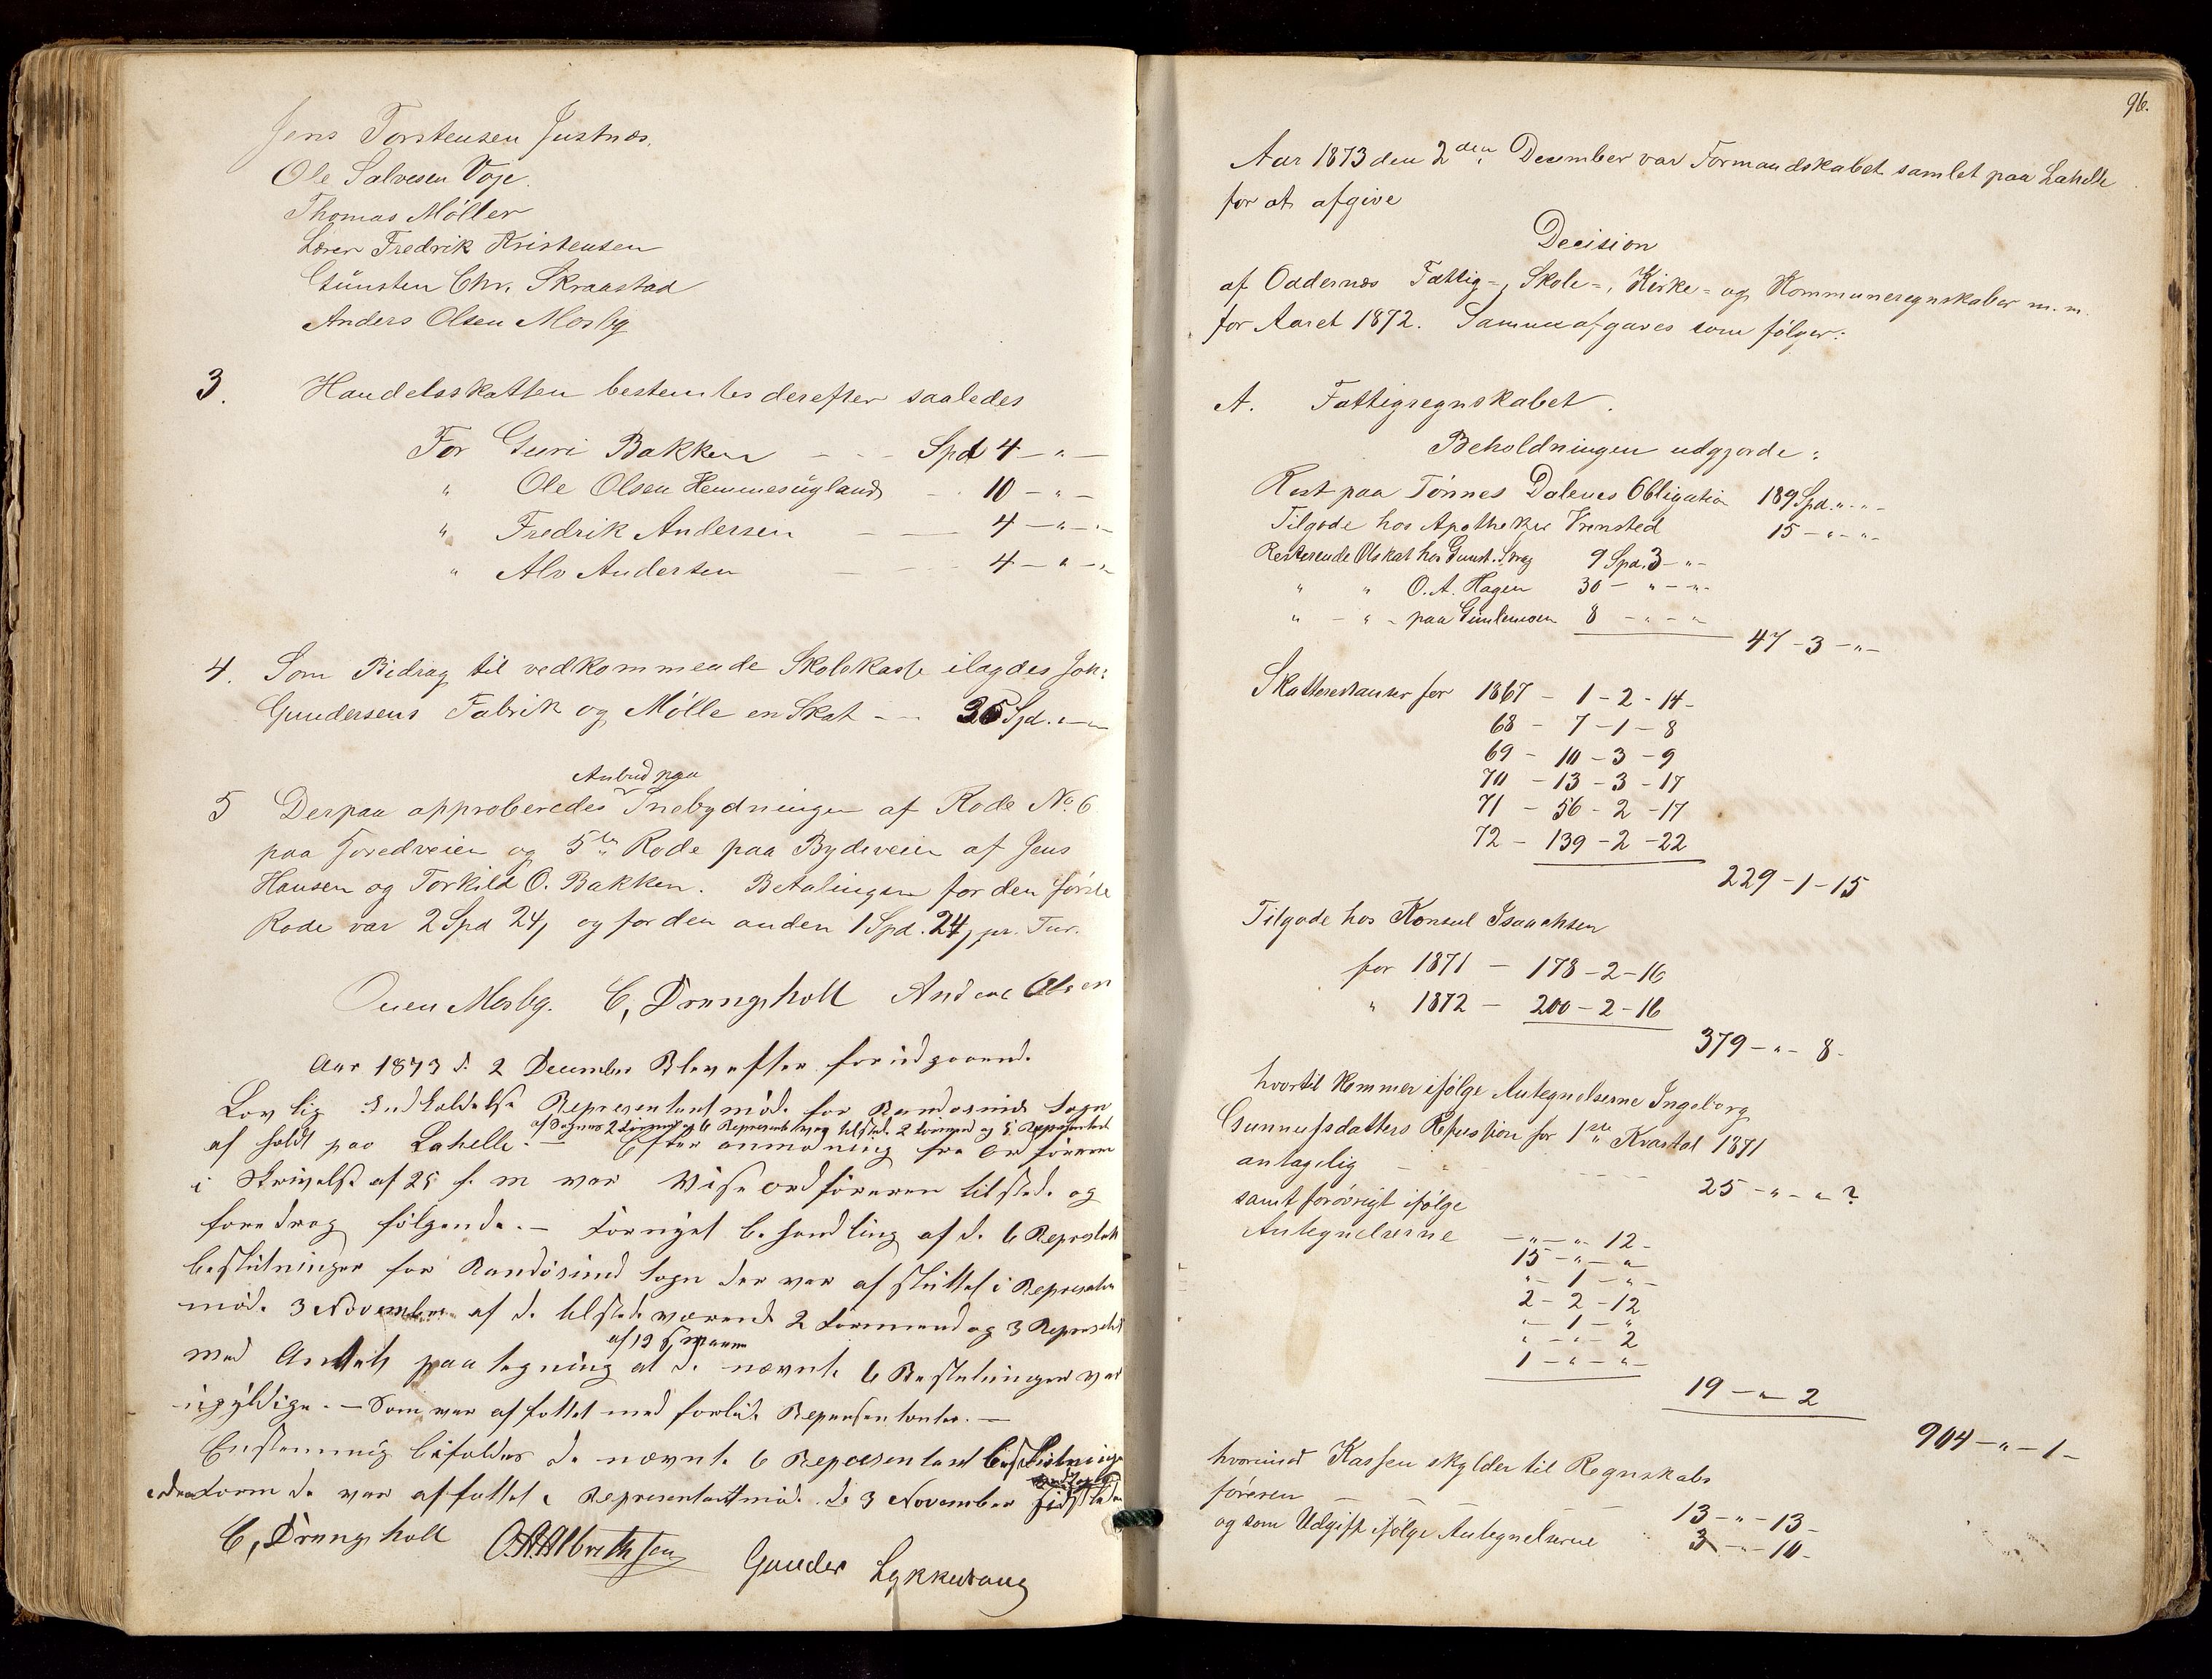 Jens Torstensen Justnæs.
Ole Salvesen Voje.
Thomas Möller
Lærer Fredrik Kristensen
Gunsten Chr. Skraastad
Anders Olsen Mosby
3. Handelsskatten bestemtes derefter saaledes
For Guri Bakken - - - Spd 4 - " -
" Ole Olsen Hemmesugland - - 10 - " -
" Fredrik Andersen - - 4 - " - "
" Als Andersen - - 4 - " - "
4. Som Bidrag til vedkommende Skolekasse ilagdes Joh:
Gundersens Fabrik og Mølle en Skat - - Spd. " - "
Anbud paa
5 Derpaa approberedes Snebydningen af Rode No. 6
paa Hovedveien og 5te Rode paa Bydeveien af Jens
Hansen og Torkild O. Bakken. Betalingen for den første
Rode var 2 Spd 24, og for den anden 1 Spd. 24, pr. Tur.
Ouen Mosby. C, Drangsholt Anders Olsen
Aar 1873 d. 2 December Blev efter foridgaaend.
Lovlig Indkaldelse Representantmöde for Randøsund Sogn
af holdt paa Lahelle. - Efter anmodning fra Ordföreren
i Skrivelse af 25 f. m var Vise ordföreren tilstede og
foredrog følgende. - Fornyet behandling af de 6 Represtant
beslutninger for Randøsund Sogn der var afsluttet i Represetan
möde 3 November af de tilstedeværende 2 Formænd og 3 Represtat
af 19 f
med Amtets paategning at de nævnte 6 Beslutninger var
ugyldige. - Som var affattet med forlide Representanter. -
Enstemmig bifaldes de nævnte 6 Representant beslutninger
form de var affattet i Representantmöde de 3 November sidstleden
C, Drangsholt O. A. Albrethsen Gunder Lykkedrang
96.
Aar 1873 den 2den December var Formandskabet samlet paa Lahelle
for at afgive
Decision
af Oddernæs Fattig-, Skole-, Kirke- og Kommuneregnskaber m. m.
for Aaret 1872. Samme afgaves som følger:
A. Fattigregnskabet.
Beholdningen udgjorde:
Rest paa Tønnes Dalenes Obligation 189 Spd. " - " -
Tilgode hos Apotheker Vrensted 15 - " - " -
Resterende Ølskat hos Gunst. Strag 9 Spd. 3 - " -
" " O. A. Hagen 30 - " - " -
" - " - paa Gimlemoen 8 - " - "
47 - 3 - " -
Skatterestanser for 1867 - 1 - 2 - 14 -
68 - 7 - 1 - 8
69 - 10 - 3 - 9
70 - 13 - 3 - 17
71 - 56 - 2 - 17
72 - 139 - 2 - 22
229 - 1 - 15
Tilgode hos Konsul Isaachsen
for 1871 - 178 - 2 - 16
" 1872 - 200 - 2 - 16
379 - " - 8 -
hvortil kommer ifølge Antegnelserne Ingeborg
Gunnufsdatters Refusion for 1ste Kvartal 1871
antagelig - - - - 25 - " - " ?
samt forøvrigt ifølge
Antegnelserne - " - " - 12 -
15 - " - "
" - 1 - " -
2 - 2 - 12
" - 1 - "
" - " - 2
1 - " - " -
19 - " - 2
904 - " - 1 -
hvorimod Kassen skylder til Regnskabs
føreren - - - 13 - " - 13 -
og som Udgift ifølge Antegnelserne 3 - " - 10 -